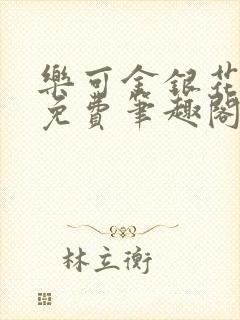 樂可金銀花
免費筆趣閣
林立衡